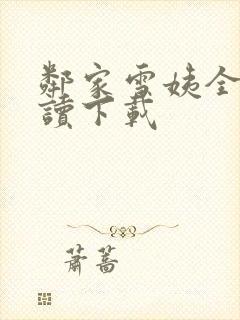 鄰家雪姨全
讀下載
蕭蒿